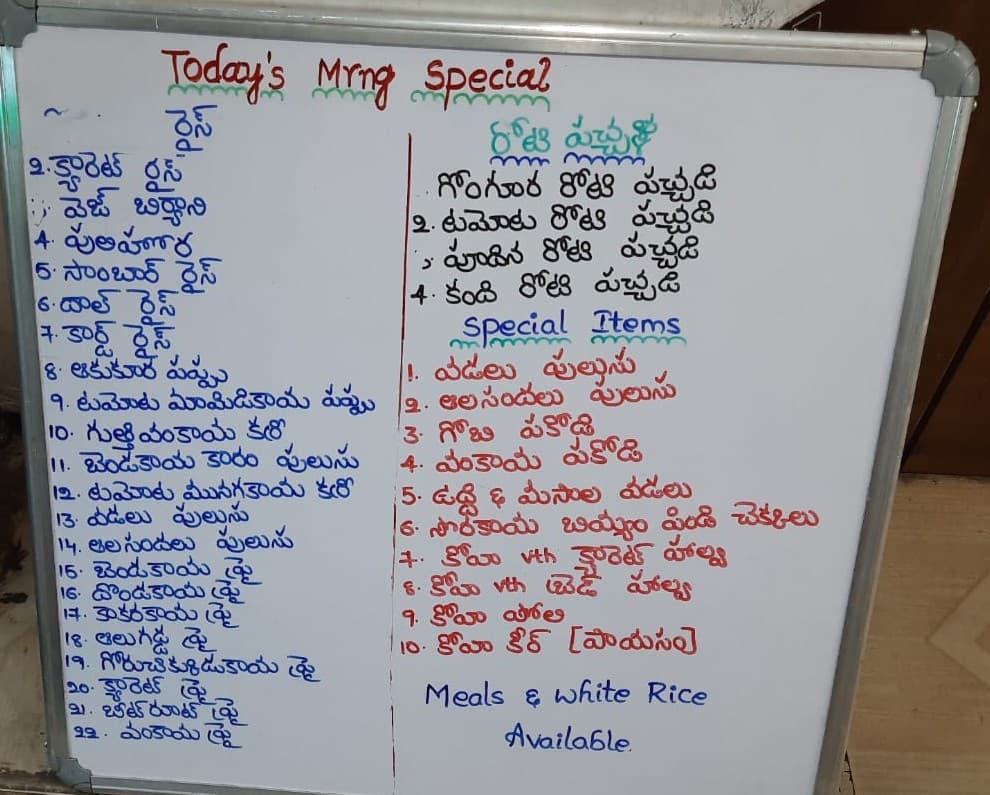 Today's Mrng Special
రైస్
2. క్యారెట్ రైస్
వెజ్ బిర్యాని
4. పులిహోర
5. సాంబార్ రైస్
6. దాల్ రైస్
7. కార్డ్ రైస్
8. ఆకుకూర పప్పు
9. టమోట మామిడికాయ పప్పు
10. గుత్తివంకాయ కర్రీ
11. బెండకాయ కారం పులుసు
12. టమోట మునగకాయ కర్రీ
13. వడలు పులుసు
14. అలసందలు పులుసు
15. బెండకాయ ఫ్రై
16. దొండకాయ ఫ్రై
17. కాకరకాయ ఫ్రై
18. ఆలుగడ్డ ఫ్రై
19. గోరుచిక్కుడుకాయ ఫ్రై
20. క్యారెట్ ఫ్రై
21. బీట్‌రూట్ ఫ్రై
22. వంకాయ ఫ్రై
రోటి పచ్చళ్లు
గోంగూర రోటి పచ్చడి
2. టమోట రోటి పచ్చడి
పూదిన రోటి పచ్చడి
4. కంది రోటి పచ్చడి
Special Items
1. వడలు పులుసు
2. అలసందలు పులుసు
3. గోబి పకోడి
4. వంకాయ పకోడి
5. ఉద్ది & మసాల వడలు
6. సొరకాయ బియ్యం పిండి చెక్కలు
7. కోవా vth క్యారెట్ హల్వా
8. కోవా vth బ్రెడ్ హల్వా
9. కోవా పోలి
10. కోవా కీర్ [పాయసం]
Meals & White Rice
Available.